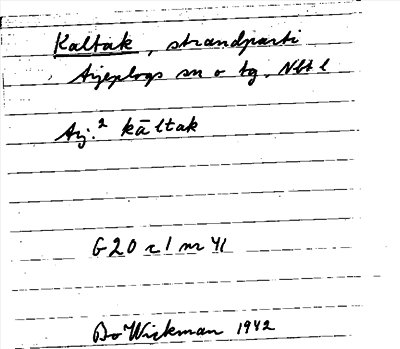 Kaltak, strandparti
Arjeplogs sn o tg. Nbt l
Arj.² kāltak
G 20 r 1 nr 41
Bo Wickman 1942